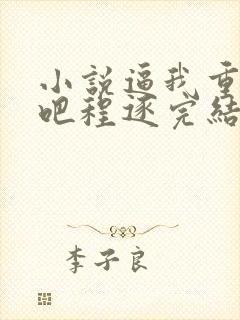 小說逼我重
吧程逐完結
李子良